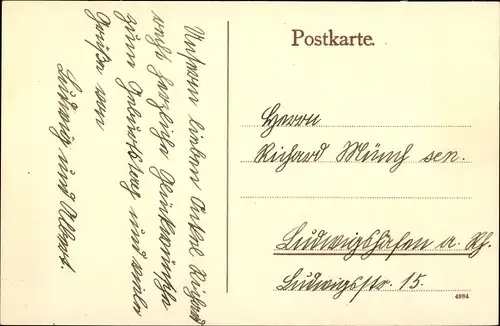 Unserm lieben Onkel Richard
recht herzliche Glückwünsche
zum Geburtstag und viele
Grüße von
Ludwig und Albert.
Postkarte.
Herrn
Richard Münch sen.
Ludwigshafen a. Rh.
Ludwigsstr. 15.
4984